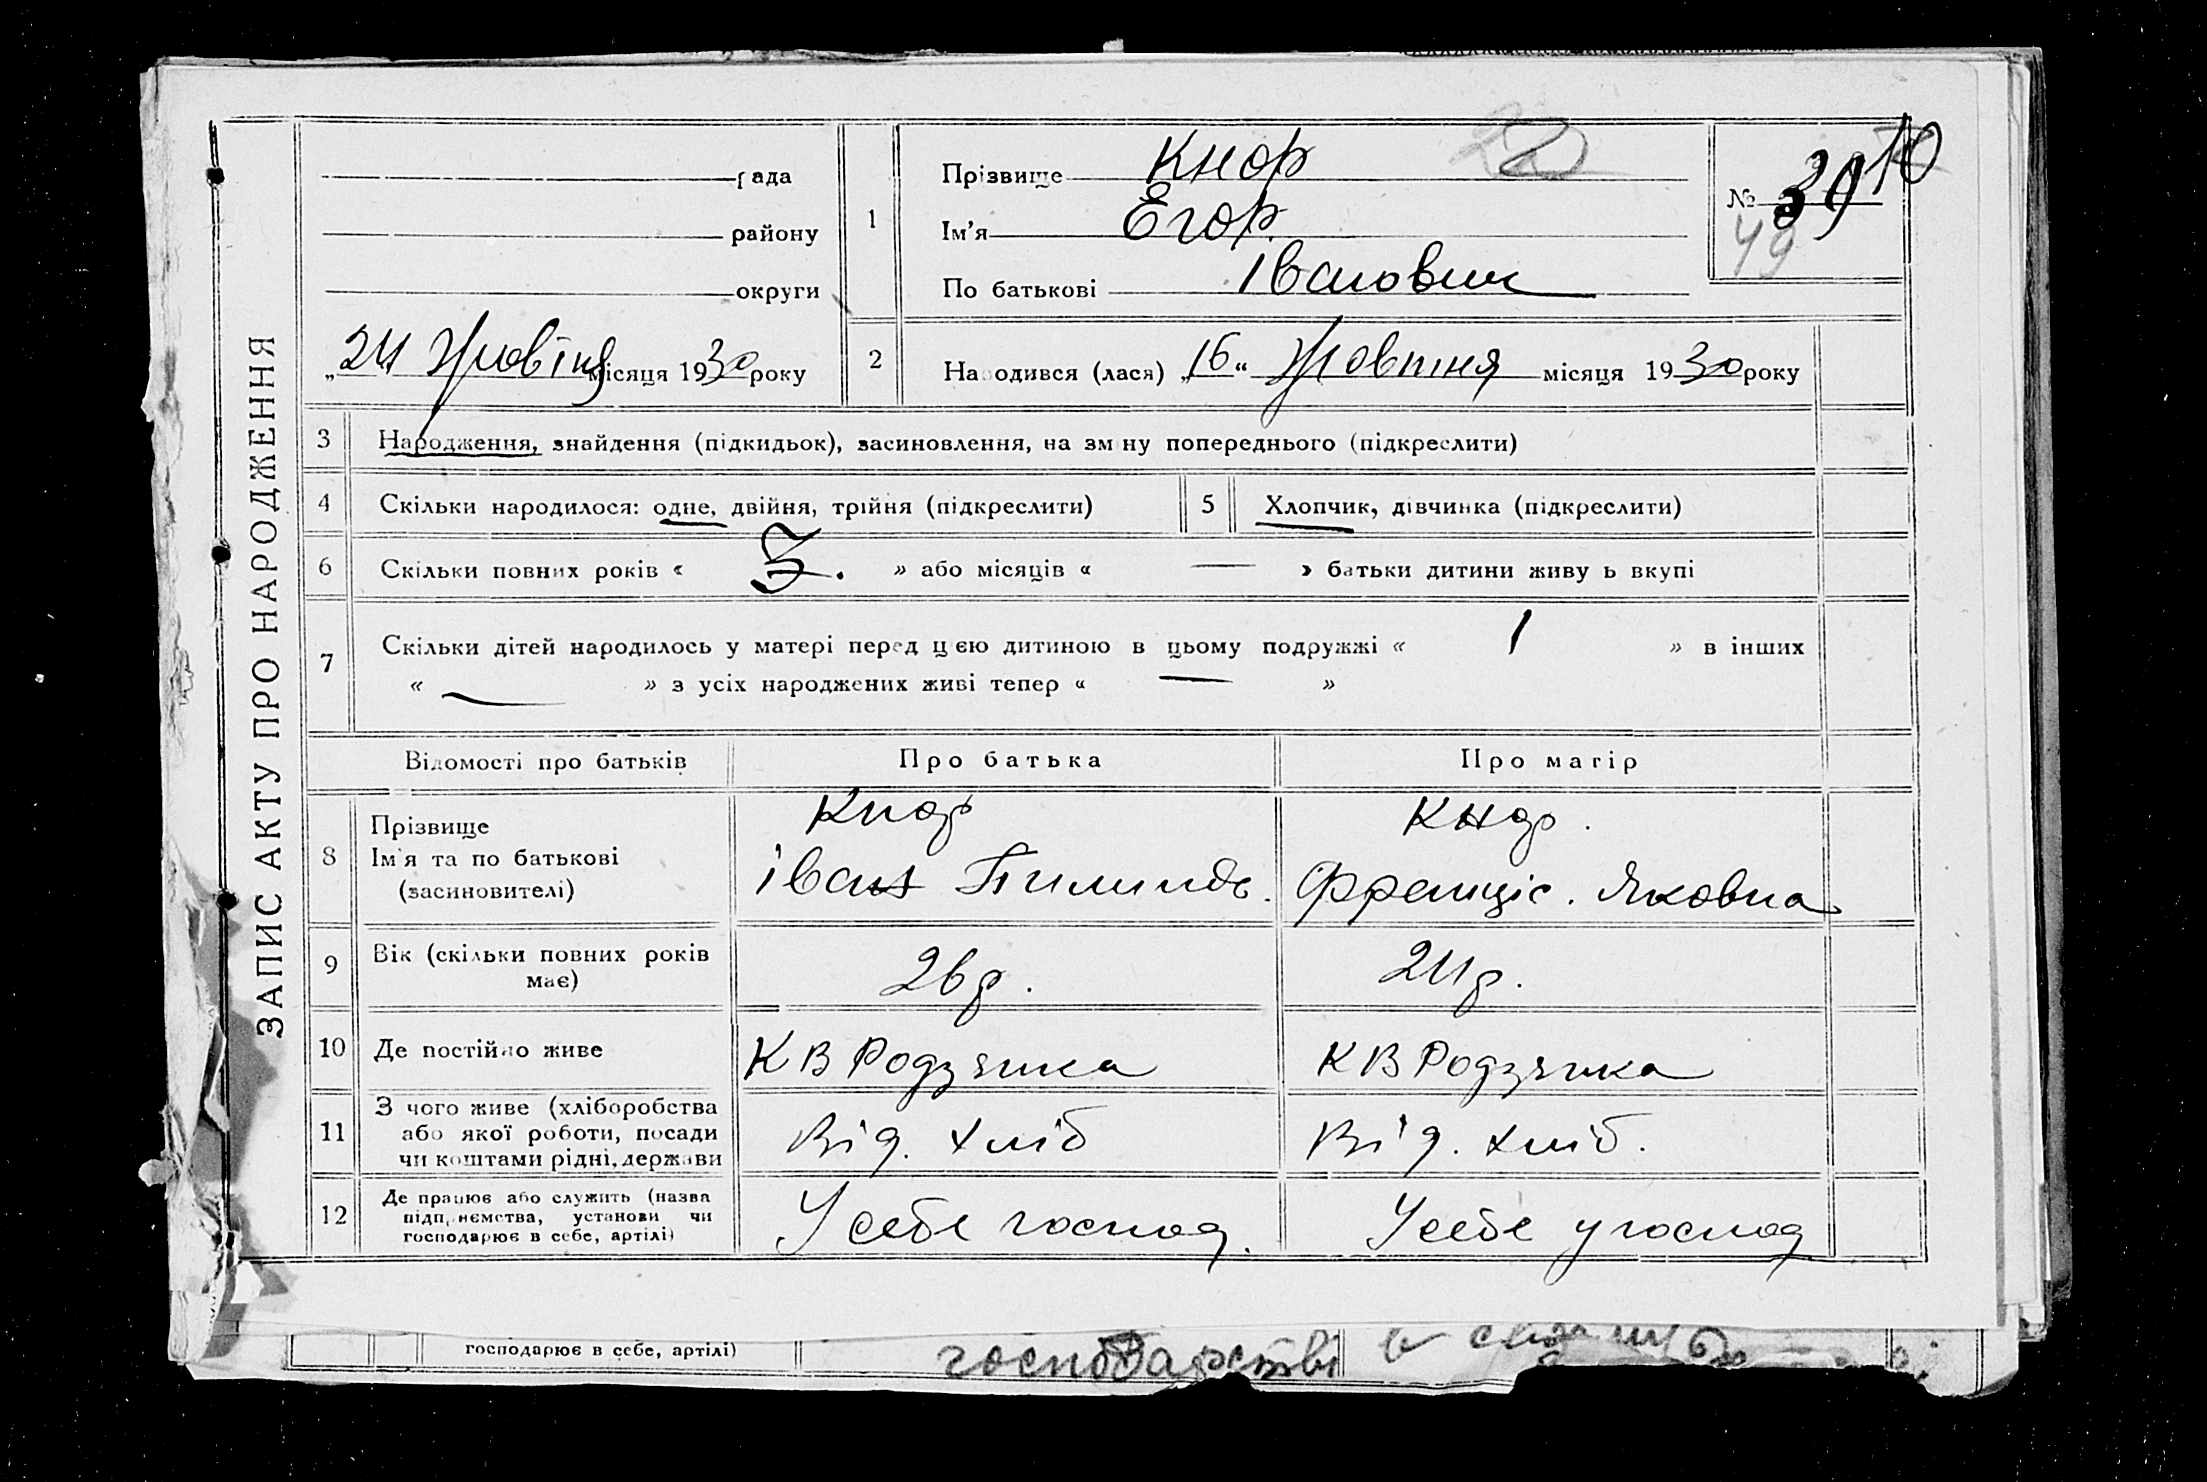 ЗАПИС АКТУ ПРО НАРОДЖЕННЯ
рада
району
округи
„24 Жовтня місяця 1930 року
1
Прізвище Кнор
Ім'я Егор.
По батькові Іванович
№ 39 40
49
2
Народився (лася) „16“ Жовтня місяця 1930 року
3 Народження, знайдення (підкидьок), засиновлення, на зміну попереднього (підкреслити)
4 Скільки народилося: одне, двійня, трійня (підкреслити) 5 Хлопчик, дівчинка (підкреслити)
6 Скільки повних років « 3. » або місяців « — » батьки дитини живуть вкупі
7 Скільки дітей народилось у матері перед цією дитиною в цьому подружжі « 1 » в інших
« — » з усіх народжених живі тепер « — »
Відомості про батьків Про батька Про матір
8 Прізвище Кнор Кнор.
Ім'я та по батькові Іван Франціс. Яковна
(засиновителі)
9 Вік (скільки повних років має) 26р. 24р.
10 Де постійно живе К В Родзянка К В Родзянка
11 З чого живе (хліборобства
або якої роботи, посади Від. хліб Від. хліб.
чи коштами рідні, держави
12 Де працює або служить (назва
підприємства, установи чи У себе господ. У себе у господ
господарює в себе, артілі)
господарює в себе, артілі) господарстві